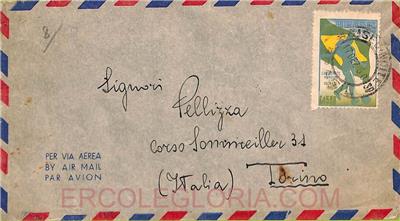 8/
Signori
Pellizza
corso Sommeiller 31
(Italia) Torino
PER VIA AEREA
BY AIR MAIL
PAR AVION
ERCOLEGLORIA.COM